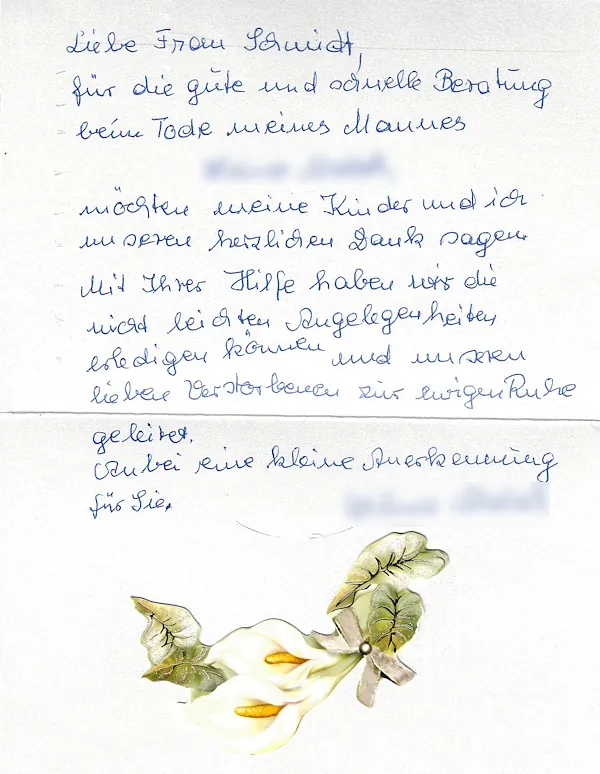 Liebe Frau Schmidt,
für die gute und schnelle Beratung
beim Tode meines Mannes
möchten meine Kinder und ich
unseren herzlichen Dank sagen.
Mit Ihrer Hilfe haben wir die
nicht leichten Angelegenheiten
erledigen können und unseren
lieben Verstorbenen zur ewigen Ruhe
geleitet.
Anbei eine kleine Anerkennung
für Sie.